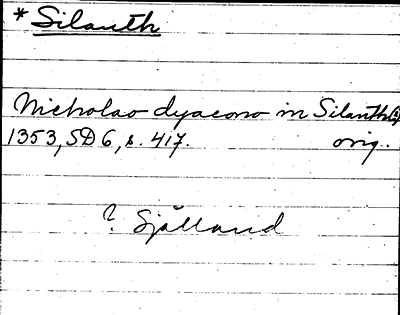 * Silanth
Nicholao dyacono in Silanth
1353, SD 6, s. 417. orig.
? Själland